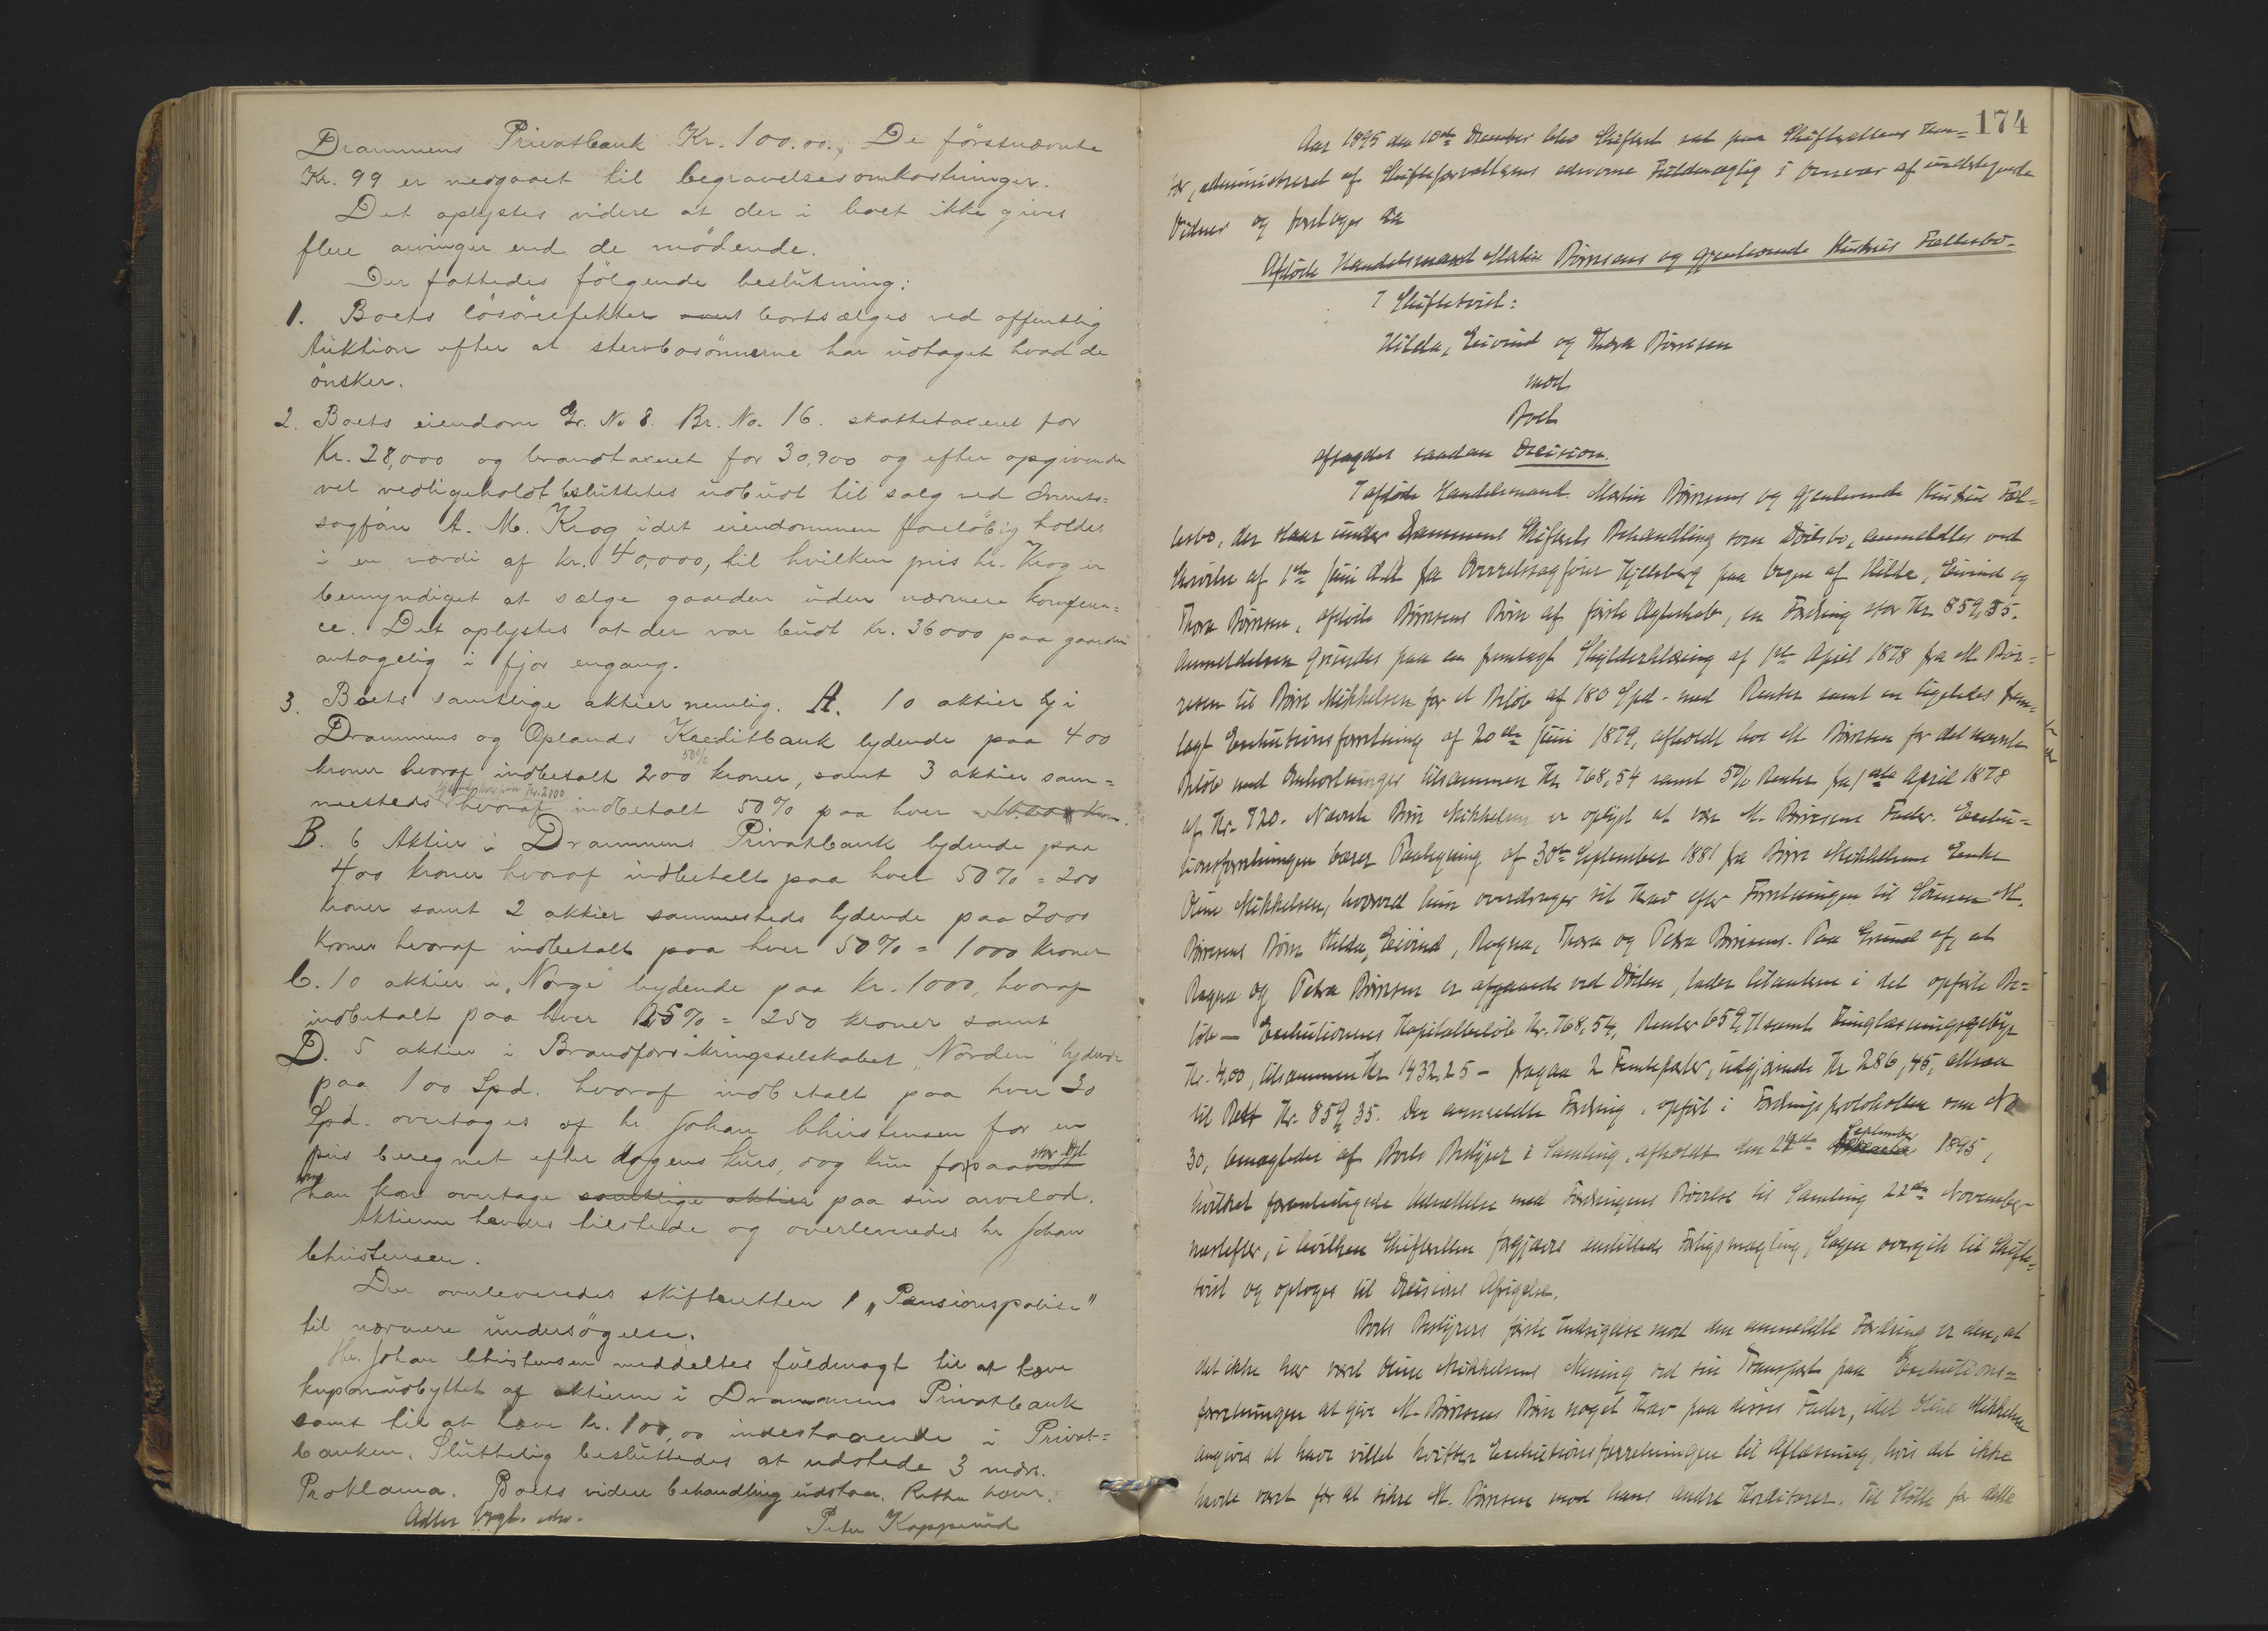 Drammens Privatbank Kr. 100.00., De förstnævnte
Kr. 99 er medgaaet til begravelsesomkostninger.
Det oplystes videre at der i boet ikke gives
flere arvinger end de mödende.
Der fattedes fölgende beslutning:
1. Boets lösöreeffekter bortsælges ved offentlig
Auktion efter at stervbosönnerne har udtaget hvad de
önsker.
2. Boets eiendom Gr. No 8. Br. No. 16. skattetaxeret for
Kr. 28,000 og brandtaxeret for 30,900 og efter opgivende
vel vedligeholdt besluttetes udbudt til salg ved
sagförer A. M. Krog idet eiendommen foreløbig holdes
i en værdi af kr. 40,000, til hvilken pris hr. Krog er
bemyndiget at sælge gaarden uden nærmere konferan=
ce. Det oplystes at der var budt Kr. 36000 paa gaarden
antagelig i fjor engang.
3. Boets samtlige aktier nemlig. A. 10 aktier i
Drammens og Oplands Kreditbank lydende paa 400
50%
kroner hvoraf indbetalt 200 kroner, samt 3 aktier sam=
lydende hver paa Kr. 2000
mesteds hvoraf indbetalt 50% paa hver
B. 6 Aktier i Drammens Privatbank lydende paa
400 kroner hvoraf indbetalt paa hver 50% = 200
kroner samt 2 aktier sammesteds lydende paa 2000
Kroner hvoraf indbetalt paa hver 50% = 1000 kroner
C. 10 aktier i „Norge" lydende paa Kr. 1000, hvoraf
indbetalt paa hver 25% = 250 kroner samt
D. 5 aktier i Brandforsikringsselskabet „Norden" lydende
paa 100 Spd. hvoraf indbetalt paa hver 30
Spd. overtages af hr. Johan Christensen for en
pris beregnet efter dagens kurs, dog kun forsaavidt
stor Del
han kan overtage samtlige aktier paa sin arvelod.
Aktierne havdes tilstede og overleveredes hr Johan
Christensen.
Der overleveredes skifteretten 1 „Pensionspolise"
til nærmere undersögelse.
Hr. Johan Christensen meddeltes fuldmagt til at hæve
kuponudbyttet af aktierne i Drammens Privatbank
samt til at hæve kr. 100,00 indestaaende i Privat=
banken. Sluttelig besluttedes at udstede 3 mdrs.
Proklama. Boets videre behandling udstaar. Retten hævet.
Adler Vogt. Peter Kopperud
174
Aar 1895 den 10de December blev Skifteret sat paa Skifterettens Kon=
tor, administreret af Skifteforvalterens edsvorne Fuldmægtig i Overvær af undertegnede
Vidner og foretoges da
Afdøde Handelsmand Martin Börresens og gjenlevende Hustrus Fællesbo.
I Skiftetvist:
Hilda, Eivind og Thora Börresen
mod
Boet
afsagdes saadan Decision.
I afdøde Handelsmand Martin Börresens og gjenlevende Hustrus Fæl=
lesbo, der staar under Drammens Skifterets Behandling som Dødsbo, anmeldtes ved
Skrivelse af 1ste Juni d.A. fra Overretssagfører Hjelsberg paa Vegne af Hilda, Eivind og
Thora Börresen, afdøde Börresens Börn af første Ægteskab, en Fordring stor Kr. 859,35.
Anmeldelsen grundes paa en fremlagt Skylderklæring af 1ste April 1878 fra M. Bör=
resen til Börre Mikkelsen for et Beløb af 180 Spd. med Renter samt en ligeledes frem=
lagt Exekutionsforretning af 20de Juni 1879, afholdt hos M. Börresen for det nævnte
Beløb med Omkostninger tilsammen Kr. 768,54 samt 5% Renter fra 1ste April 1878
af Kr. 720. Nævnte Börre Mikkelsen er oplyst at være M. Börresens Fader. Exeku=
tionsforretningen bærer Paategning af 30te September 1881 fra Börre Mikkelsens Enke
Oline Mikkelsen, hvorved hun overdrager sit Krav efter Forretningen til Sönnen M.
Börresens Börn Hilda, Eivind, Ragna, Thora og Petra Börresens. Paa Grund af, at
Ragna og Petra Börresen er afgaaede ved Døden, lader Citanterne i det opførte Be=
løb — Exekutionens Kapitalbeløb Kr. 768,54, Renter 659,71 samt Tinglæsningsgebyr
Kr. 4,00, tilsammen Kr. 1432,25 — fragaa 2 Femteparter, udgjørende Kr. 286,45, altsaa
til Rest Kr. 859,35. Den anmeldte Fordring, opført i Fordringsprotokollen som No
30, benægtedes af Boets Bestyrer i Samling, afholdt den 27de September 1895,
hvilket foranledigede Udsættelse med Fordringens Prøvelse til Samling 22de November
næstefter, i hvilken Skifteretten forgjæves anstillede Forligsmægling, Sagen overgik til Skifte=
tvist og optoges til Decisions Afsigelse.
Boets Bestyrers første Indsigelse mod den anmeldte Fordring er den, at
det ikke har været Oline Mikkelsens Mening ved sin Transport paa Exekutions=
forretningen at give M. Börresens Börn noget Krav paa disses Fader, idet Oline Mikkelsen
angives at have villet kvittere Exekutionsforretningen til Aflæsning, hvis det ikke
havde været for at sikre M. Börresen mod hans andre Kreditorer. Til Støtte for dette